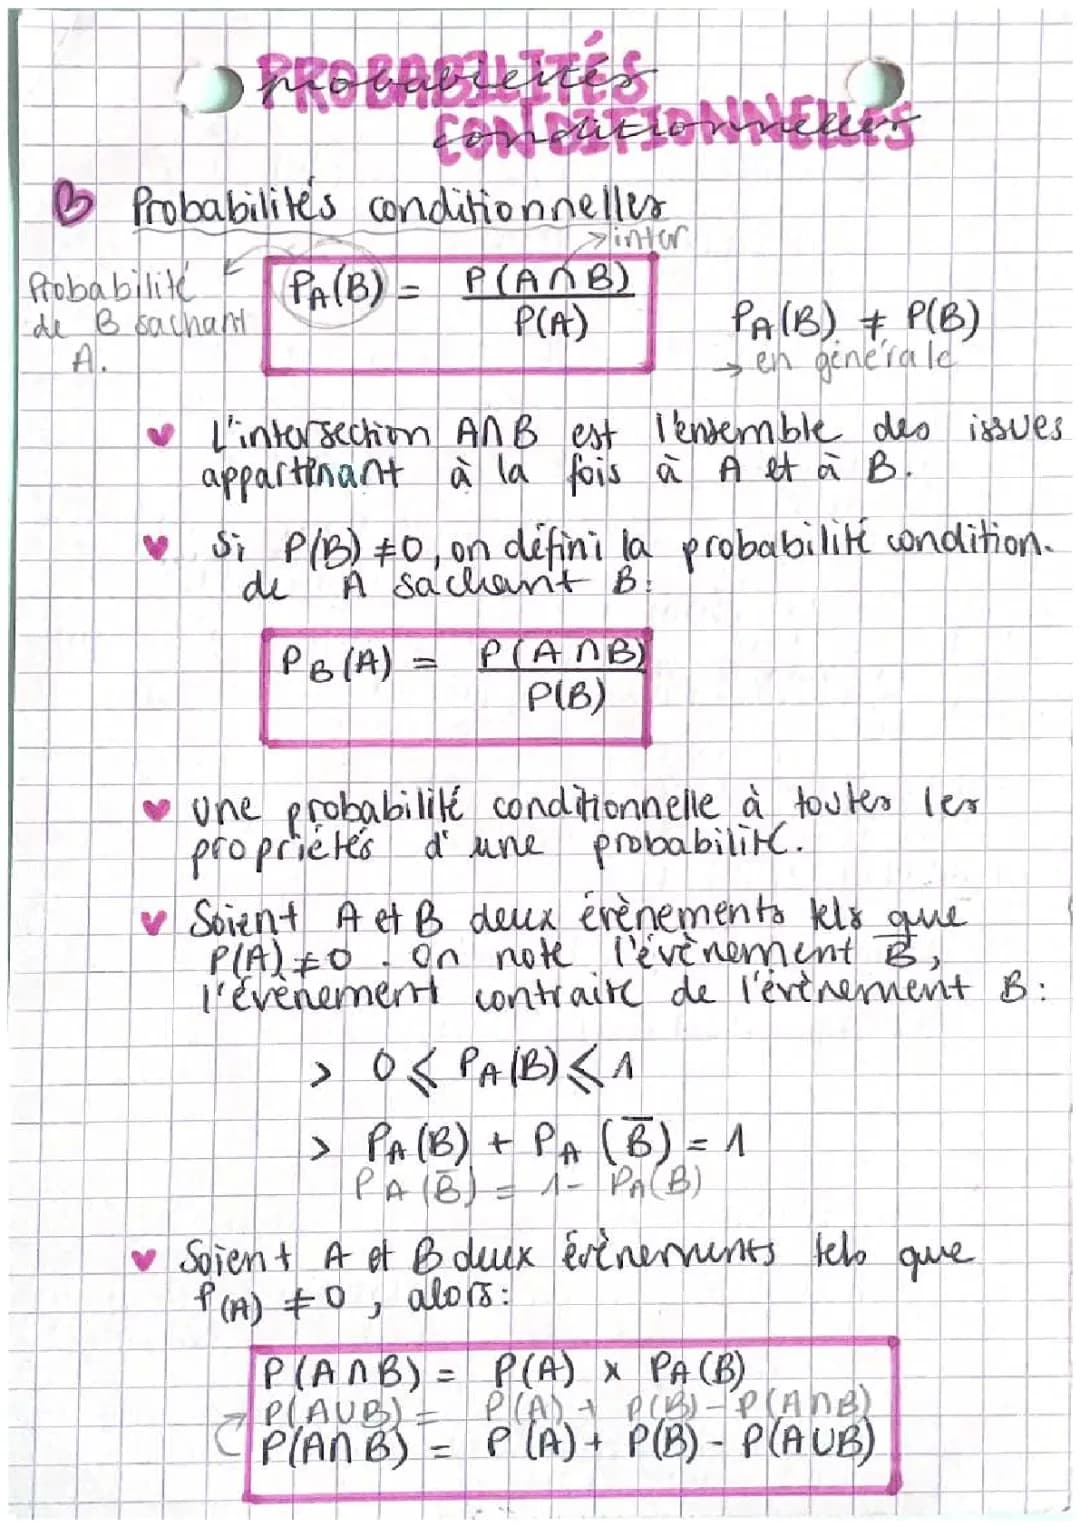 PROBABILITÉS
probabilités
CONDITIONNELLES
conditionnelles
Probabilités conditionnelles
→ inter
Probabilité
de B sachant
A.
PA(B) = P(A∩B)
P(A)
PA(B) ≠ P(B)
→ en générale
L'intersection A∩B est l'ensemble des issues
appartenant à la fois à A et à B.
Si P(B) ≠ 0, on défini la probabilité condition.
de A sachant B:
PB(A) = P(A∩B)
P(B)
Une probabilité conditionnelle à toutes les
propriétés d'une probabilité.
Soient A et B deux évènements tels que
P(A) ≠ 0. On note l'évènement B̅,
l'évènement contraire de l'évènement B:
> 0 ⩽ PA(B) ⩽ 1
> PA(B) + PA(B̅) = 1
PA(B̅) = 1 - PA(B)
Soient A et B deux évènements tels que
P(A) ≠ 0, alors:
P(A∩B) = P(A) x PA(B)
P(A∪B) = P(A) + P(B) - P(A∩B)
P(A∩B) = P(A) + P(B) - P(A∪B)